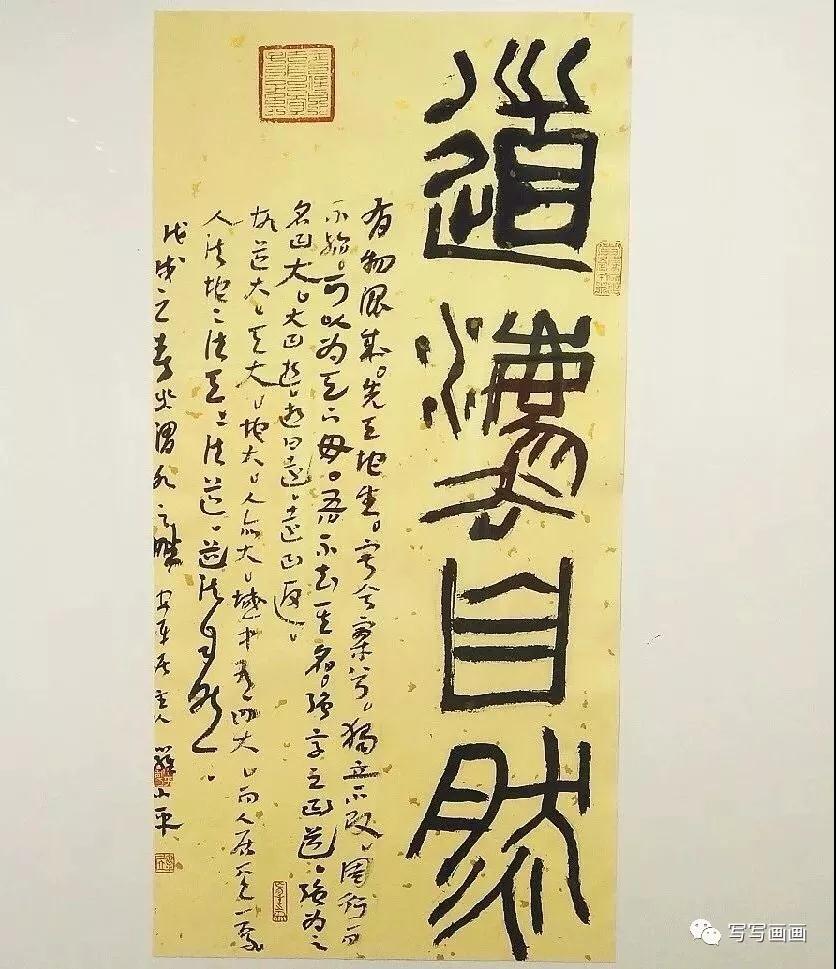 道灋自然
有物混成。先天地生。寂兮寥兮。獨立不改。周行而
不殆。可以为天下母。吾不知其名。强字之曰道。强为之
名曰大。大曰逝。逝曰遠。遠曰返。
故道大。天大。地大。人亦大。域中有四大。而人居其一焉
人法地〻法天〻法道。道法自然。
戊戌之春於渭水之畔 居主人
写写画画